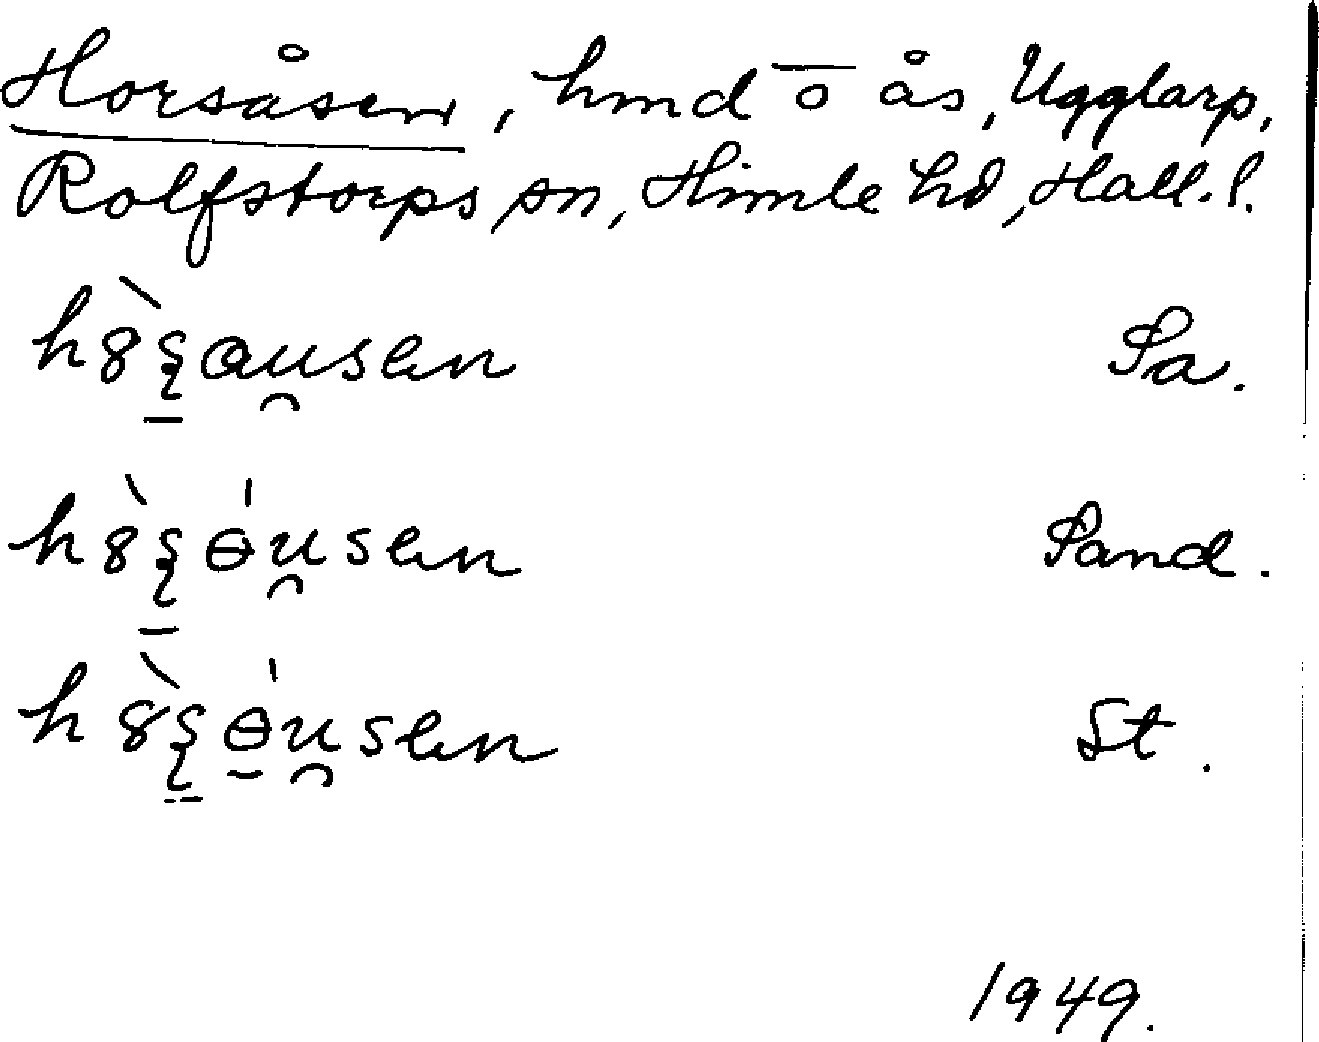 Horsåsen, hmd o ås, Ugglarp,
Rolfstorps sn, Himle hd, Hall. l.
hȣ̀ʂau̯sen Sa.
hȣ̀ʂɵ́u̯sen Sand.
hȣ̀ʂɵ́u̯sen St.
1949.